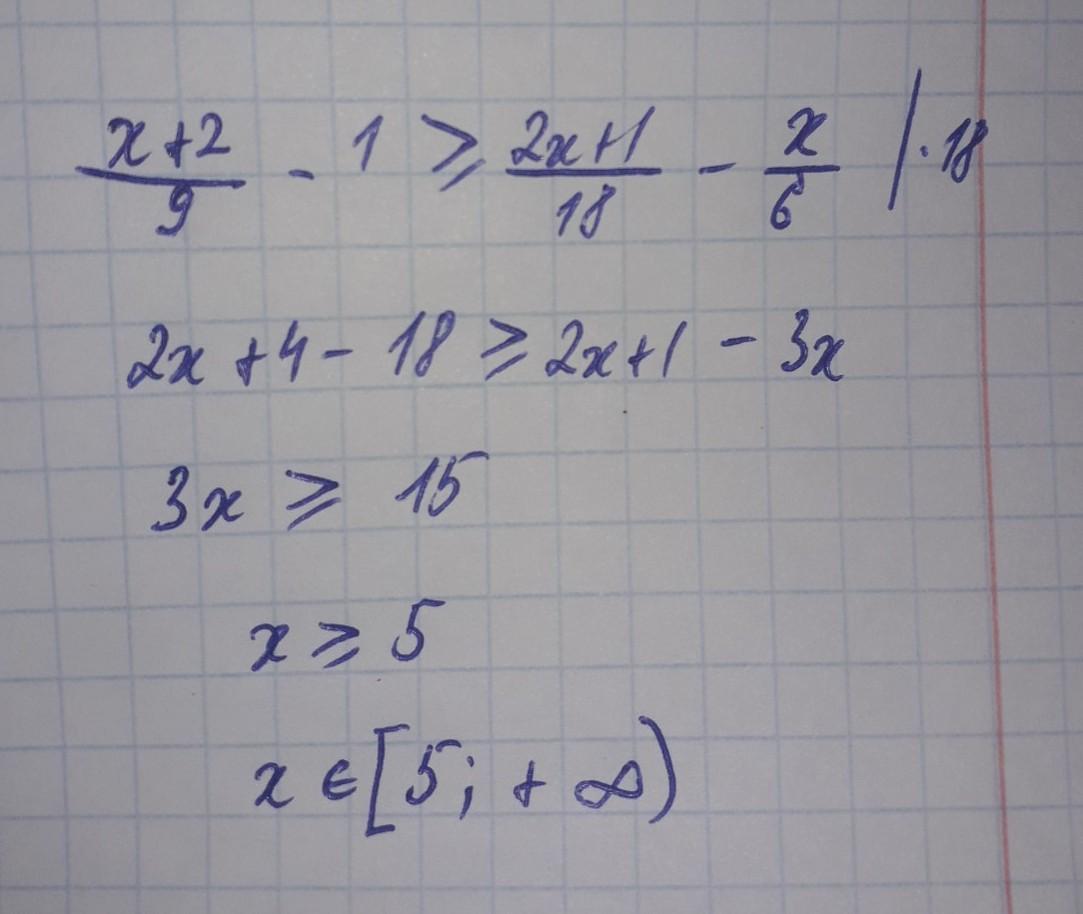 (x+2)/9 - 1 ⩾ (2x+1)/18 - x/6 | · 18
2x + 4 - 18 ⩾ 2x + 1 - 3x
3x ⩾ 15
x ⩾ 5
x ∈ [5; + ∞)